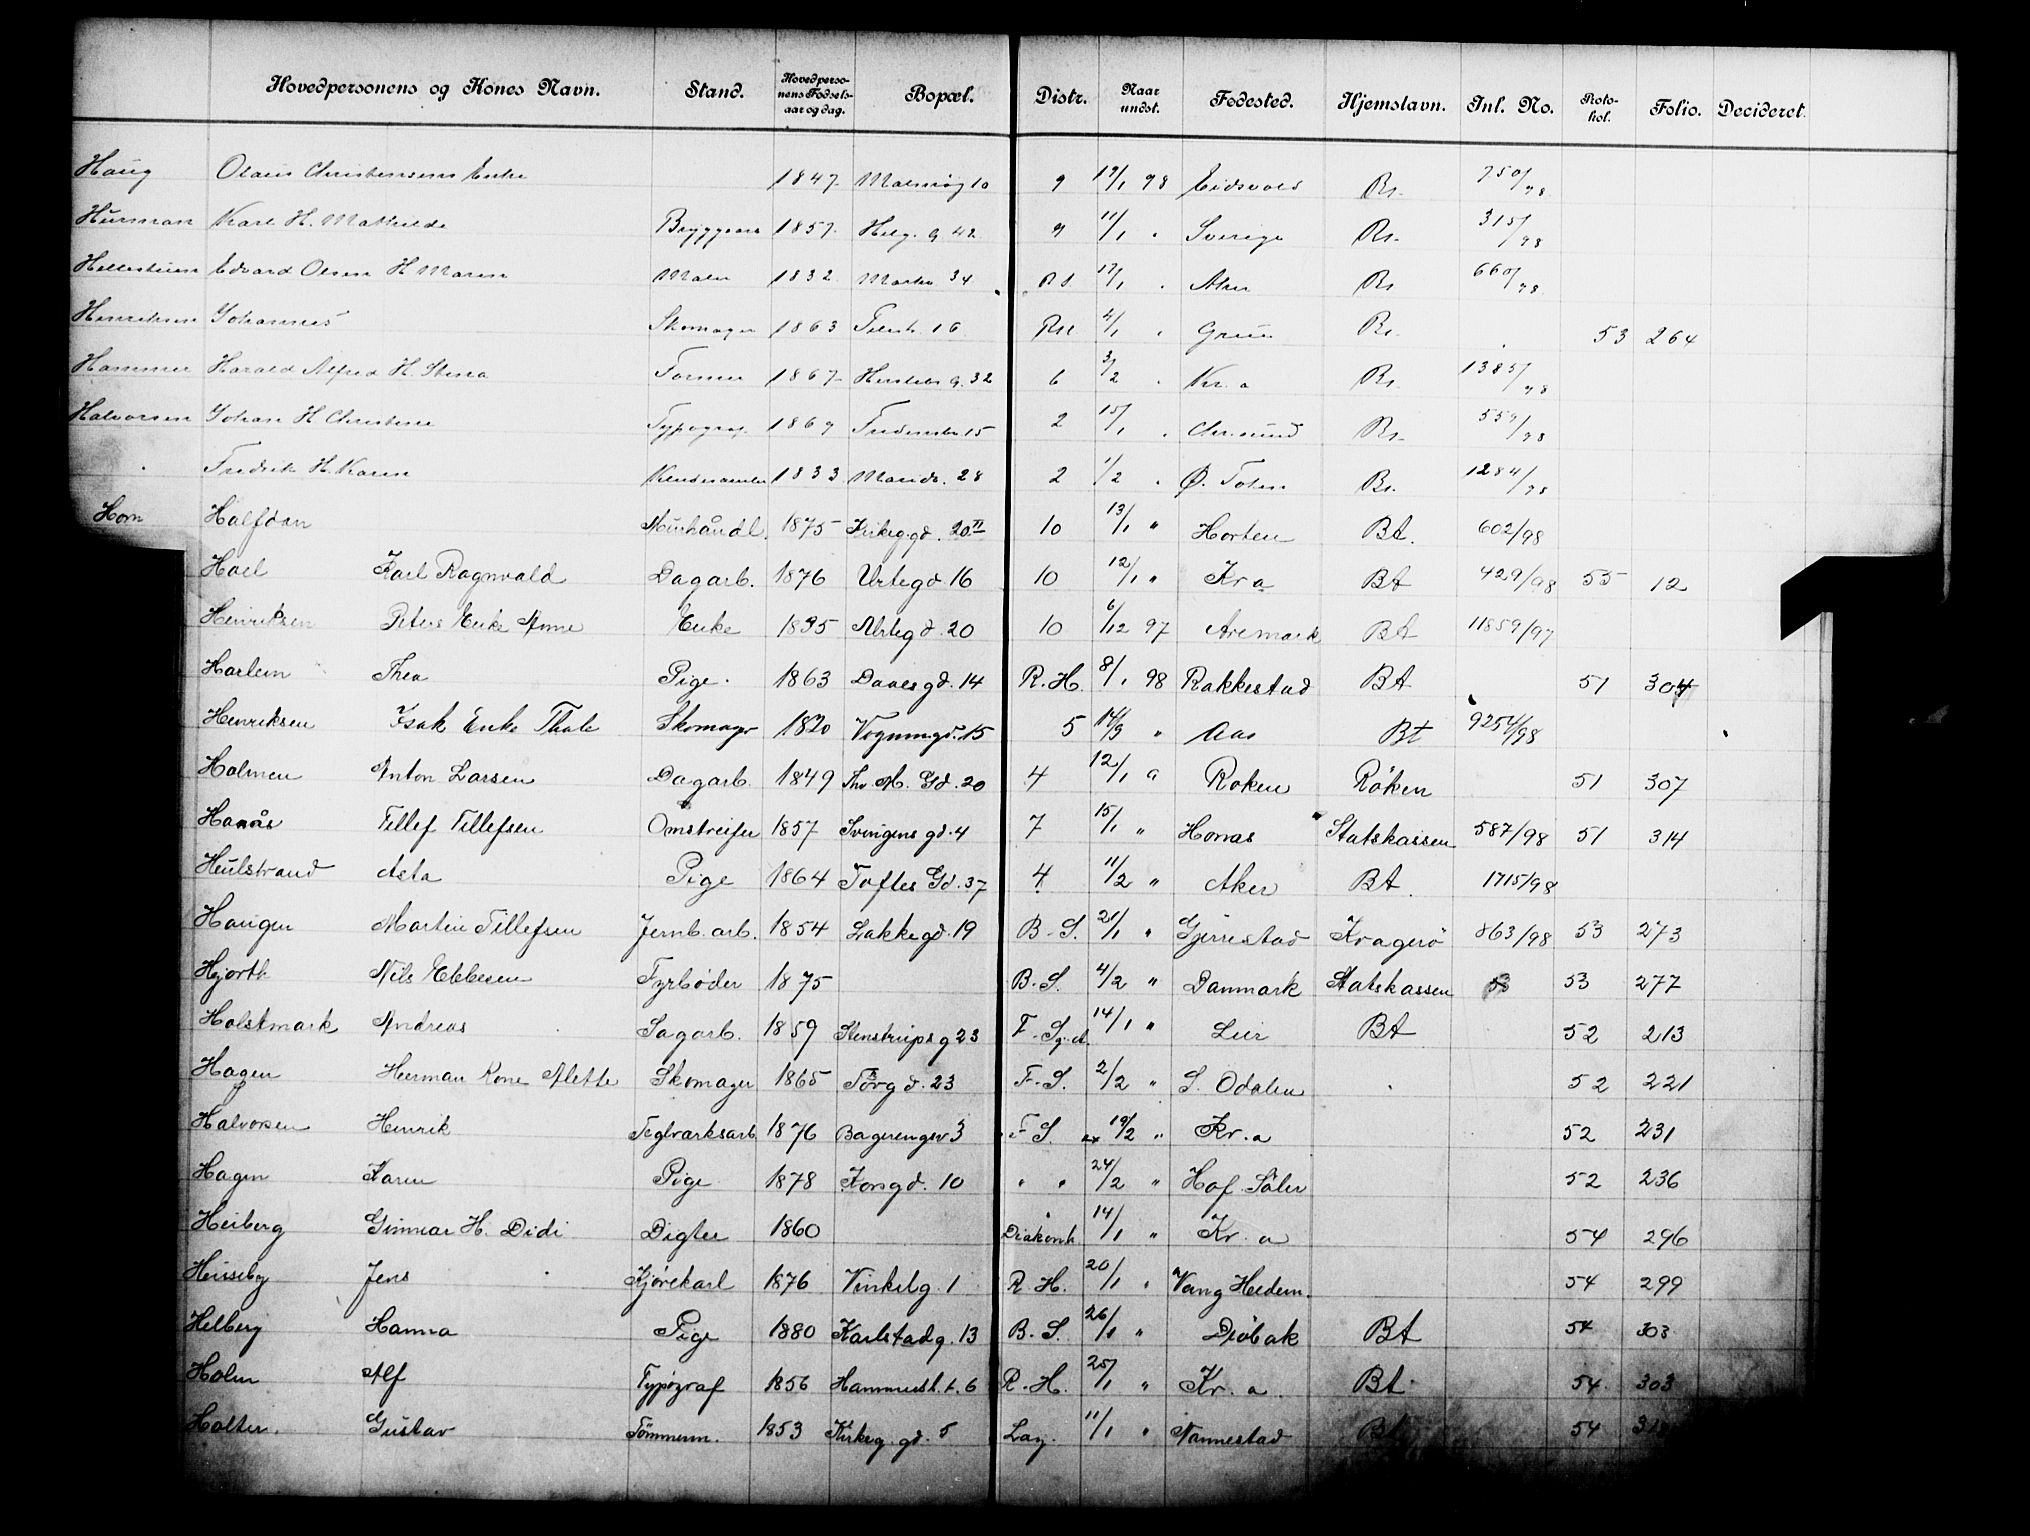 Hovedpersonens og Kones Navn. Stand. Hovedpersonens Fødselsaar og dag. Bopæl. Distr. Naar undst. Fødested. Hjemstavn. Inl. No. Protokol. Folio. Decideret.
Haug Olaus Christensens Enke 1847 Malmøg 10 9 19/1 98 Eidsvold Bt. 750/98
Karl H. Mathilde 1857 Helg. g. 42 9 11/1 " Sverige Bt. 315/98
Edvard Olsen H. Maren Maler 1832 34 17/1 " Aker Bt 660/98
Henriksen Johannes Skomager 1863 16 4/1 " Bt. 53 264
Hammer Harald Alfred H. Stina Former 1867 Herslebs g. 32 6 3/2 " Kr. a Bt. 1385/98
Halvorsen Johan H Christine Typograf. 1869 15 2 15/1 " Chr.sund Bt. 559/98
" Fredrik H. Karen 1833 Marids. 28 2 1/2 " Ø. Toten Bt. 1284/98
Horn Halfdan 1875 Kirkeg.gd. 20 II 10 13/1 " Horten Bt. 602/98
Hoel Karl Ragnvald Dagarb. 1876 Urtegd 16 10 12/1 " Kr a Bt 429/98 55 12
Henriksen Peters Enke Anne Enke 1835 Urtegd. 20 10 6/12 97 Aremark Bt 11859/97
Harlem Thea Pige. 1863 Daaesgd. 14 R. H. 8/1 98 Rakkestad Bt 51 304
Henriksen Isak Enke Thale Skomager 1820 Vognmgd. 15 5 14/9 " Aas Bt 9254/98
Holmen Anton Larsen Dagarb. 1849 Thv M. Gd. 20 4 12/1 " Røken Røken 51 307
Hanås Tellef Tellefsen Omstreifer 1857 Svingens gd. 4 7 15/1 " Statskassen 587/98 51 314
Heulstrand Asta Pige 1864 Toftes Gd. 37 4 11/2 " Aker Bt. 1715/98
Haugen Martin Tellefsen Jernb. arb. 1854 Lakkegd. 19 B. S. 21/1 " Gjerrestad Kragerø 863/98 53 273
Hjorth Nils Ebbesen Fyrbøder 1875 B. S. 4/2 " Danmark Statskassen 53 277
Holstmark Andreas Sagarb. 1859 Stenstrups g 23 F. Sy. A. 14/1 " Lier Bt 52 213
Hagen Herman Kone Alette Skomager 1865 Torvgd. 23 F. S. 2/2 " S. Odalen 52 221
Halvorsen Henrik Teglværksarb. 1876 Bagerengsv 3 F S. 19/2 " Kr. a 52 231
Hagen Karen Pige 1878 Korsgd. 10 " " 24/2 " Hof Solør 52 236
Heiberg Gunnar H. Didi Digter 1860 Diakonh 14/1 " Kr. a 54 296
Jens Kjørekarl 1876 Vinkelg. 1 R. H. 20/1 " Vang Hedem. 54 299
Helberg Hanna Pige 1880 Karlstadg. 13 B. S. 26/1 " Drøbak Bt 54 303
Holm Alf Typograf 1856 Hammerst. g. 6 R. H. 25/1 " Kr. a Bt. 54 303
Holter. Gustav Tømmerm. 1853 Kirkeg. gd. 5 11/1 " Nannestad Bt. 54